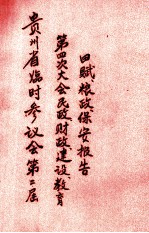 贵州省临时参议会第二届
第四次大会民政财政建设教育
田赋粮政保安报告